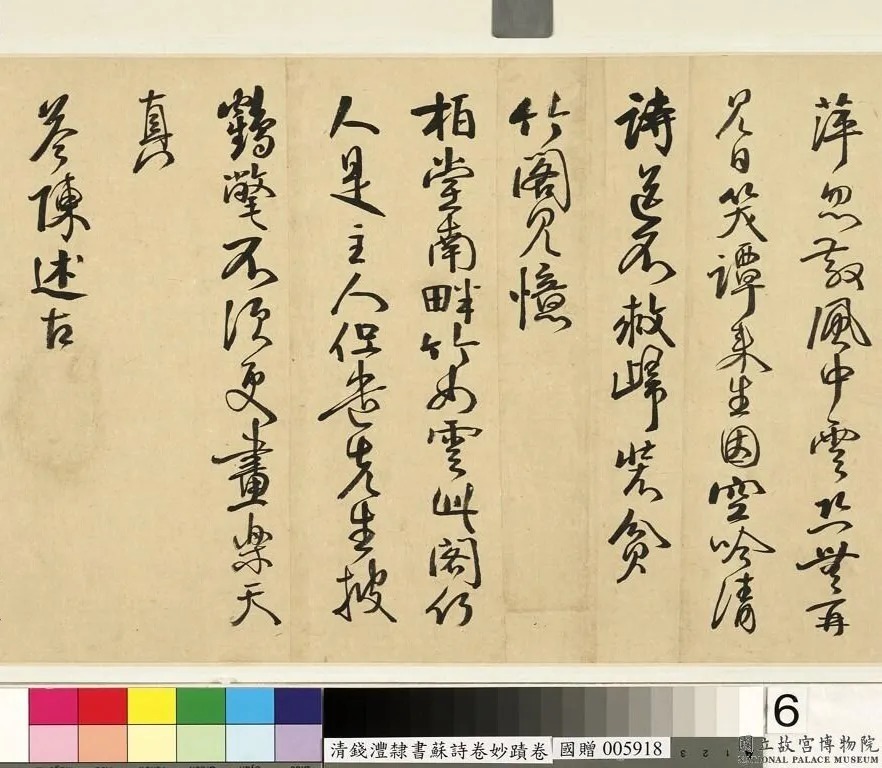 萍忽散風中雲恐無再
見日笑譚來生因空吟清
詩送不救歸裝貧
竹閣見憶
柏堂南畔竹如雲此閣何
人是主人但遣先生披
鶴氅不須更畫樂天
真
答陳述古
6
清錢灃隸書蘇詩卷妙蹟卷 國贈 005918
國立故宮博物院
NATIONAL PALACE MUSEUM